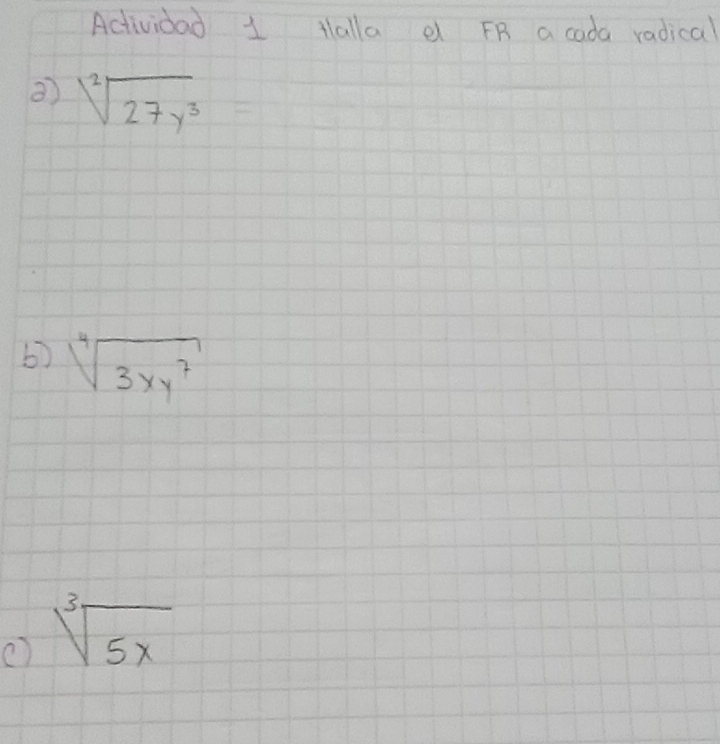 Actividad 1 Halla el FR a cada radical
a) ²√27y³ =
b) ⁴√3xy⁷
c) ³√5x